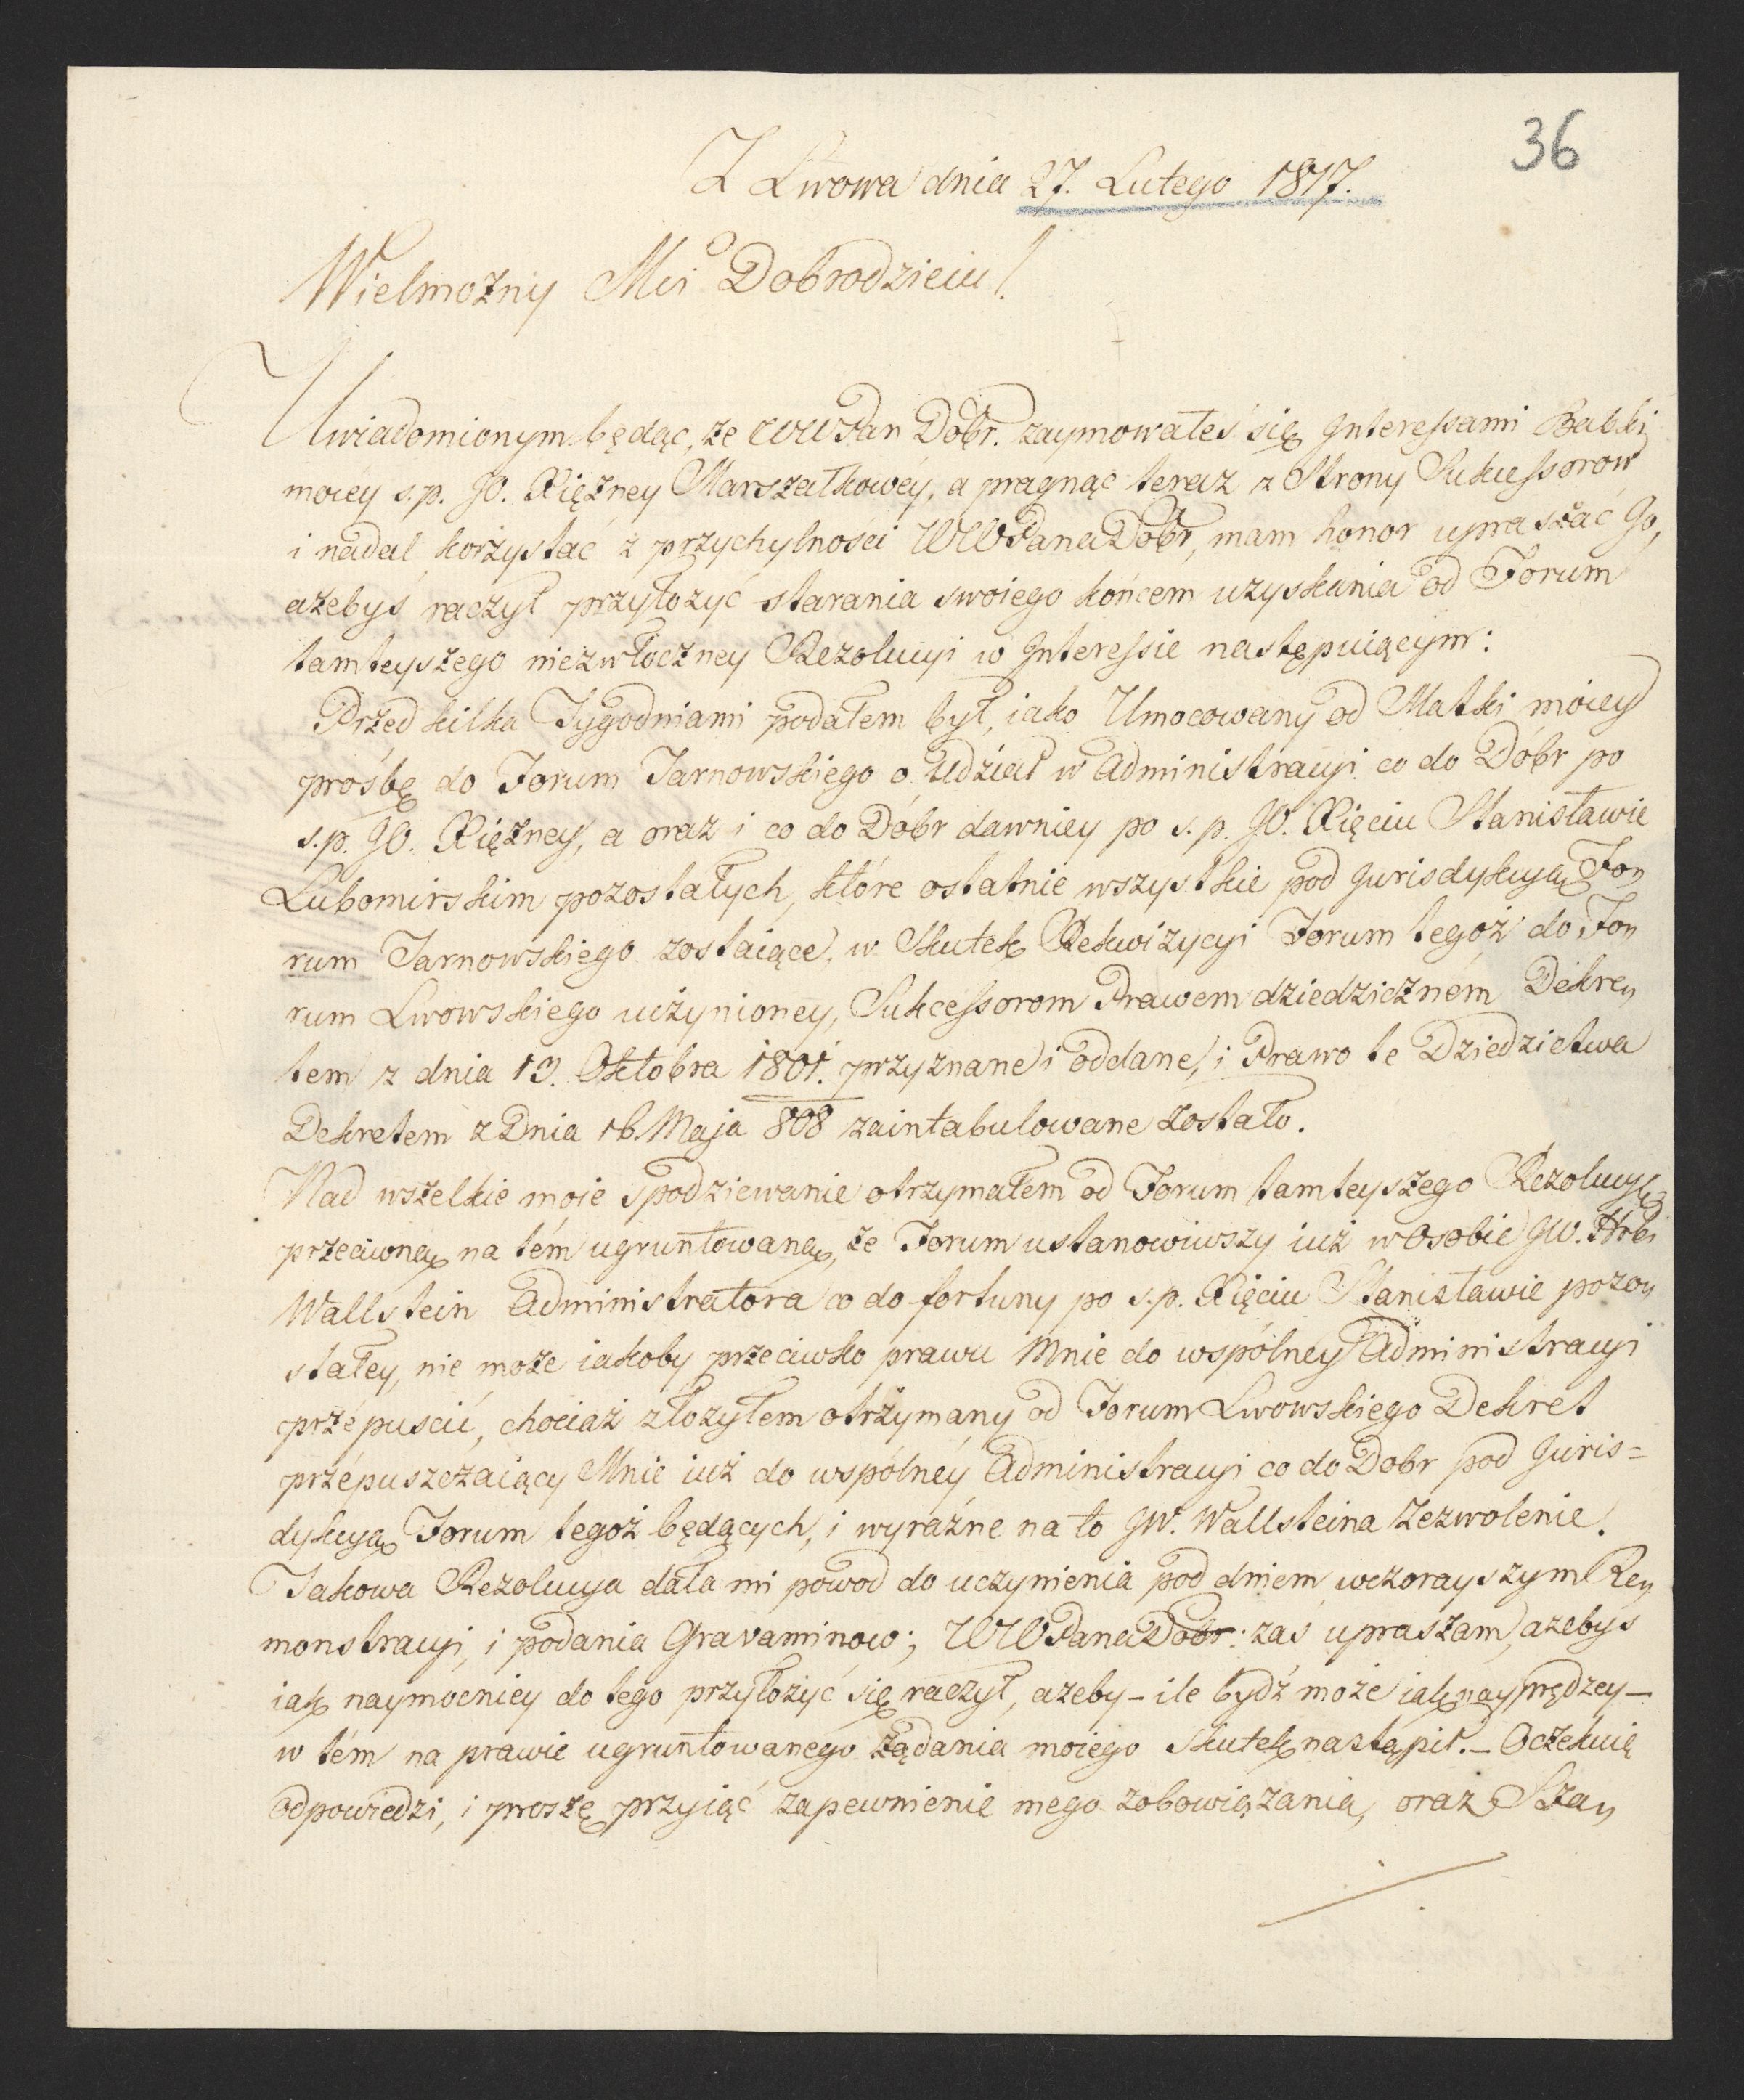 36
Z Lwowa dnia 27. Lutego 1817.
Wielmożny Mci Dobrodzieiu!
Uwiadomionym będąc, że WWPan Dobr. zaymowałeś się Interessami Babki
moiey s.p. JO. Xiężney Marszałkowéy, a pragnąc teraz z Strony Sukcessorow
i nadal korżystać z przychylności WWPana Dobr, mam honor upraszać Go,
ażebyś raczył przyłożyć starania swoiego końcem uzyskania od Forum
tamteyszego niezwłoczney Rezolucyi w Interessie następuiącym:
Przed kilka Tygodniami podałem był, iako Umocowany od Matki moiey
prośbę do Forum Tarnowskiego o Udział w Administracyi co do Dóbr po
s.p. JO. Xiężney, a oraz i co do Dóbr dawniey po s.p. JO. Xięciu Stanisławie
Lubomirskim pozostałych, które ostatnie wszystkie pod Jurisdykcyą Fo„
rum Tarnowskiego zostaiące, w Skutek Rekwizycyi Forum tegoż do Fo„
rum Lwowskiego uczynioney, Sukcessorom Prawem dziedziczném Dekre„
tem z dnia 19. Oktobra 1801. przyznane i oddane, i Prawo te Dziedzictwa
Dekretem z Dnia 16 Maja 808 zaintabulowane zostało.
Nad wszelkie moie spodziewanie otrzymałem od Forum tamteyszego Rezolucyę
przeciwną na tém ugruntowaną, że Forum ustanowiwszy iuż w Osobie JW. Hrbi
Wallstein Administratora co do fortuny po s.p. Xięciu Stanisławie pozo„
stałey, nie może iakoby przeciwko prawu Mnie do wspólney Administracyi
przépuscić, chociaż złożyłem otrżymany od Forum Lwowskiego Dekret
przépuszczaiący Mnie iuż do wspólnéy Administracyi co do Dobr pod Juris=
dykcyą Forum tegoż będących, i wyraźne na to JW. Wallsteina Zezwolenie.
Takowa Rezolucya dała mi powod do uczynienia pod dniem wczorayszym Re„
monstracyi, i podania Gravaminow; WWPana Dobr: zaś upraszam, ażebyś
iak naymocniey do tego przyłożyć się raczył, ażeby – ile bydź może iak nayprędzey –
w tém na prawie ugruntowanego żądania moiego skutek nastąpił. – Oczekuię
odpowiedzi, i proszę przyiąć zapewnienie mego zobowiązania, oraz Sza„